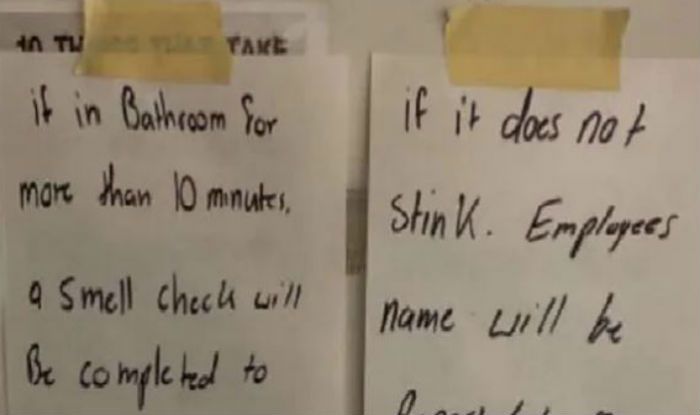 TAKE
if in Bathroom for
more than 10 minutes.
a Smell check will
Be completed to
if it does not
Stink. Employees
name will be